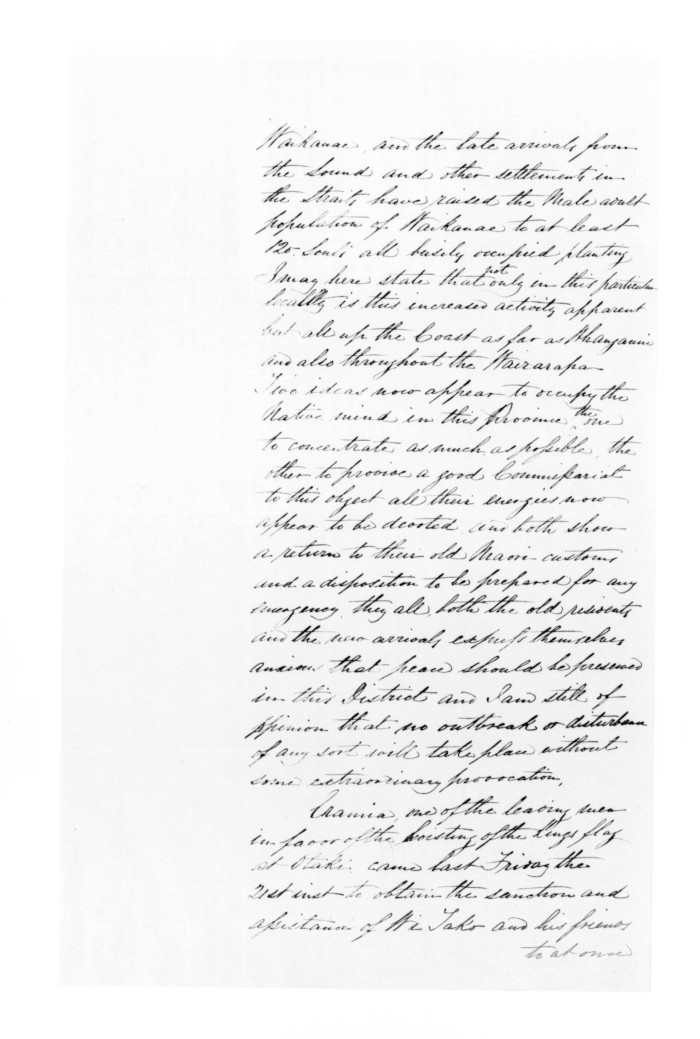 Waikanae, and the late arrivals from
the Sound and other settlements in
the Straits have raised the Male adult
population of Waikanae to at least
120 Souls all busily occupied planting
I may here state that not only in this particular
locality is this increased activity apparent
but all up the Coast as far as Whanganui
and also throughout the Wairarapa
Two ideas now appear to occupy the
Native mind in this Province, the one
to concentrate as much as possible, the
other to provide a good Commissariat
to this object all their energies now
appear to be devoted, and both show
a return to their old Maori customs
and a disposition to be prepared for any
emergency, they all, both the old residents
and the new arrivals express themselves
anxious that peace should be preserved
in this District and I am still of
opinion that no outbreak or disturbance
of any sort will take place without
some extraordinary provocation,
one of the leading men
in favor of the hoisting of the Kings flag
at Otaki. came last Friday the
21st inst to obtain the sanction and
assistance of Wi Tako and his friends
to at once